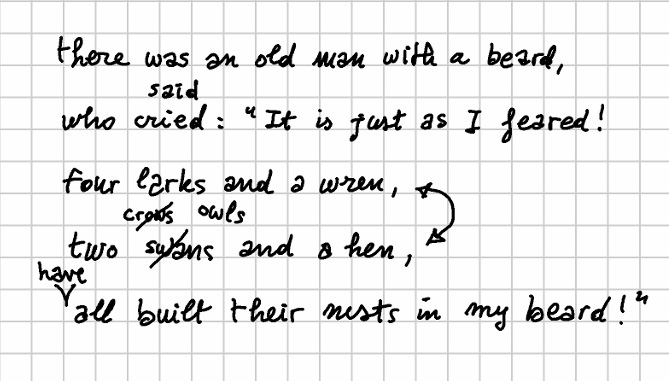 there was an old man with a beard,
said
who cried: "It is just as I feared!
four larks and a wren,
crows owls
two swans and a hen,
have
all built their nests in my beard!"